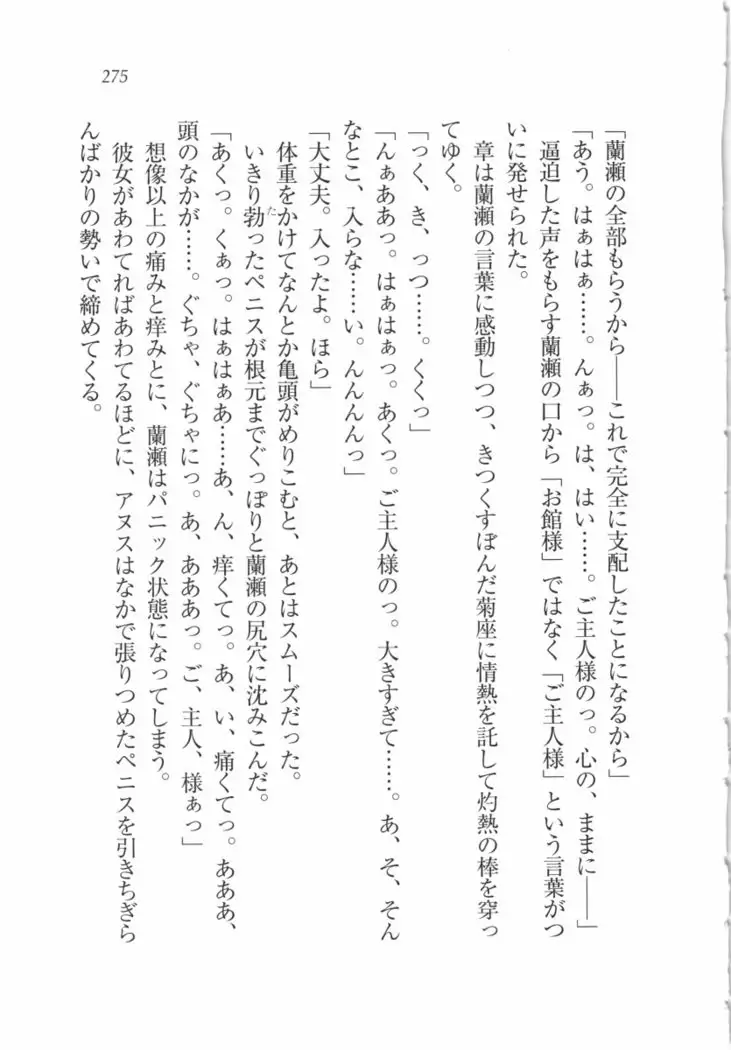 275
「蘭瀬の全部もらうから――これで完全に支配したことになるから」
「あう。はぁはぁ……。んぁっ。は、はい……。ご主人様のっ。心の、ままに――」
逼迫した声をもらす蘭瀬の口から「お館様」ではなく「ご主人様」という言葉がつ
いに発せられた。
章は蘭瀬の言葉に感動しつつ、きつくすぼんだ菊座に情熱を託して灼熱の棒を穿っ
てゆく。
「っく、き、っつ……。くくっ」
「んぁああっ。はぁはぁっ。あくっ。ご主人様のっ。大きすぎて……。あ、そ、そん
なとこ、入らな……い。んんんんっ」
「大丈夫。入ったよ。ほら」
体重をかけてなんとか亀頭がめりこむと、あとはスムーズだった。
いきり勃ったペニスが根元までぐっぽりと蘭瀬の尻穴に沈みこんだ。
「あくっ。くぁっ。はぁはぁあ……あ、ん、痒くてっ。あ、い、痛くてっ。あああ、
頭のなかが……。ぐちゃ、ぐちゃにっ。あ、あああっ。ご、主人、様ぁっ」
想像以上の痛みと痒みとに、蘭瀬はパニック状態になってしまう。
彼女があわてればあわてるほどに、アヌスはなかで張りつめたペニスを引きちぎら
んばかりの勢いで締めてくる。